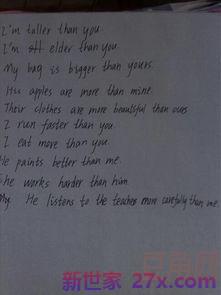 I'm taller than you.
I'm elder than you.
My bag is bigger than yours.
His apples are more than mine.
Their clothes are more beautiful than ours
I run faster than you.
I eat more than you.
He paints better than me.
She works harder than him
My He listens to the teacher more carefully than me.
新世家 27x.com